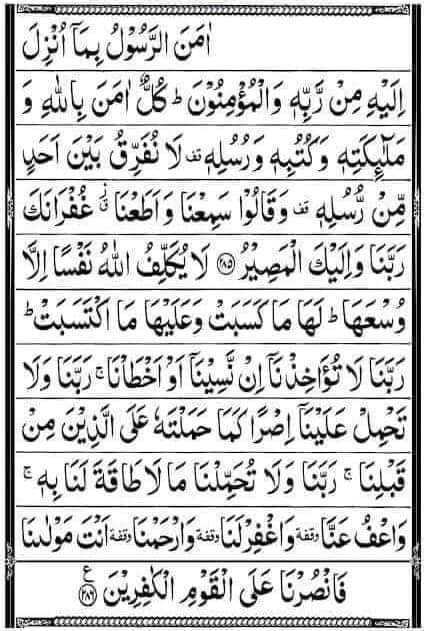 اٰمَنَ الرَّسُوْلُ بِمَاۤ اُنْزِلَ
اِلَيْهِ مِنْ رَّبِّهٖ وَالْمُؤْمِنُوْنَ ؕ كُلٌّ اٰمَنَ بِاللّٰهِ وَ
مَلٰٓئِكَتِهٖ وَكُتُبِهٖ وَرُسُلِهٖ قف لَا نُفَرِّقُ بَيْنَ اَحَدٍ
مِّنْ رُّسُلِهٖ قف وَقَالُوْا سَمِعْنَا وَاَطَعْنَا ۫ غُفْرَانَكَ
رَبَّنَا وَاِلَيْكَ الْمَصِيْرُ ﴿۲۸۵﴾ لَا يُكَلِّفُ اللّٰهُ نَفْسًا اِلَّا
وُسْعَهَا ؕ لَهَا مَا كَسَبَتْ وَعَلَيْهَا مَا اكْتَسَبَتْ ؕ
رَبَّنَا لَا تُؤَاخِذْنَاۤ اِنْ نَّسِيْنَاۤ اَوْ اَخْطَاْنَا ۚ رَبَّنَا وَلَا
تَحْمِلْ عَلَيْنَاۤ اِصْرًا كَمَا حَمَلْتَهٗ عَلَى الَّذِيْنَ مِنْ
قَبْلِنَا ۚ رَبَّنَا وَلَا تُحَمِّلْنَا مَا لَا طَاقَةَ لَنَا بِهٖ ۚ
وَاعْفُ عَنَّا وقفة وَاغْفِرْ لَنَا وقفة وَارْحَمْنَا وقفة اَنْتَ مَوْلٰىنَا
فَانْصُرْنَا عَلَى الْقَوْمِ الْكٰفِرِيْنَ ﴿۲۸۶﴾ ع